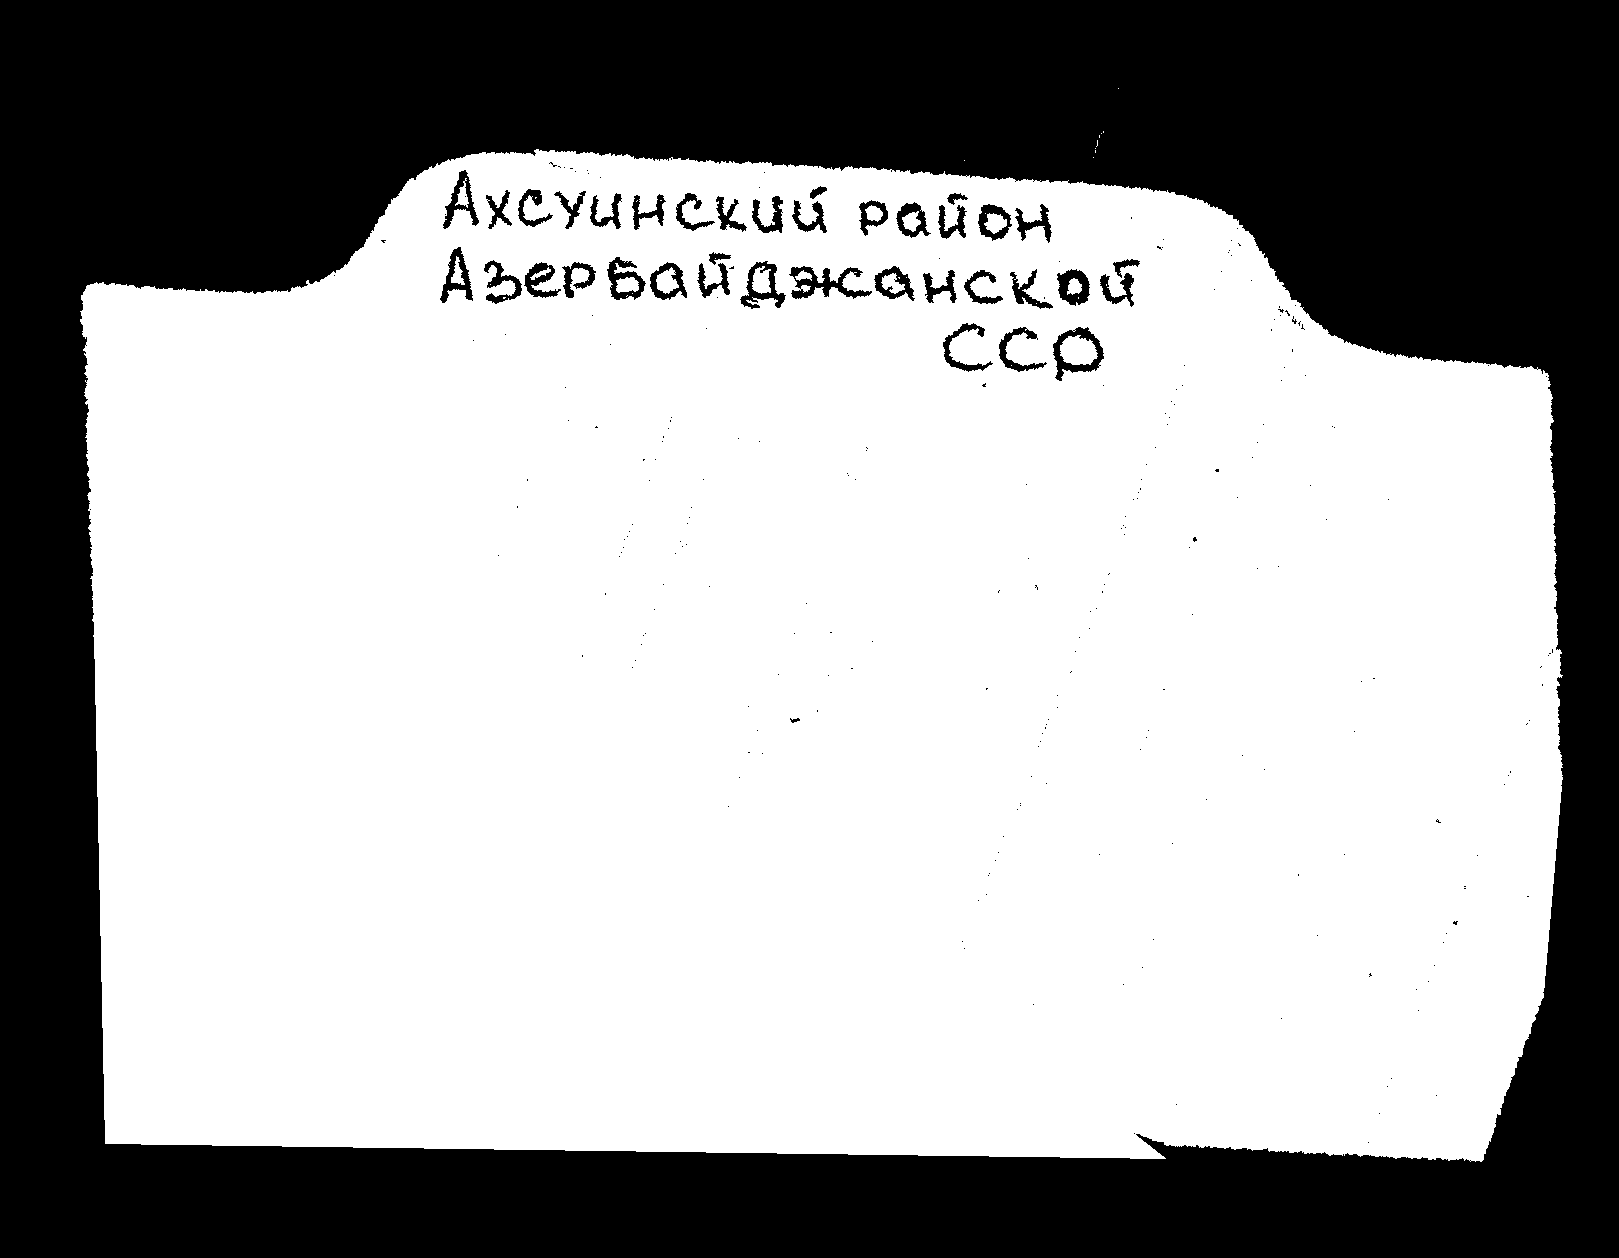 Ахсуинский район
Азербайджанской
ССР